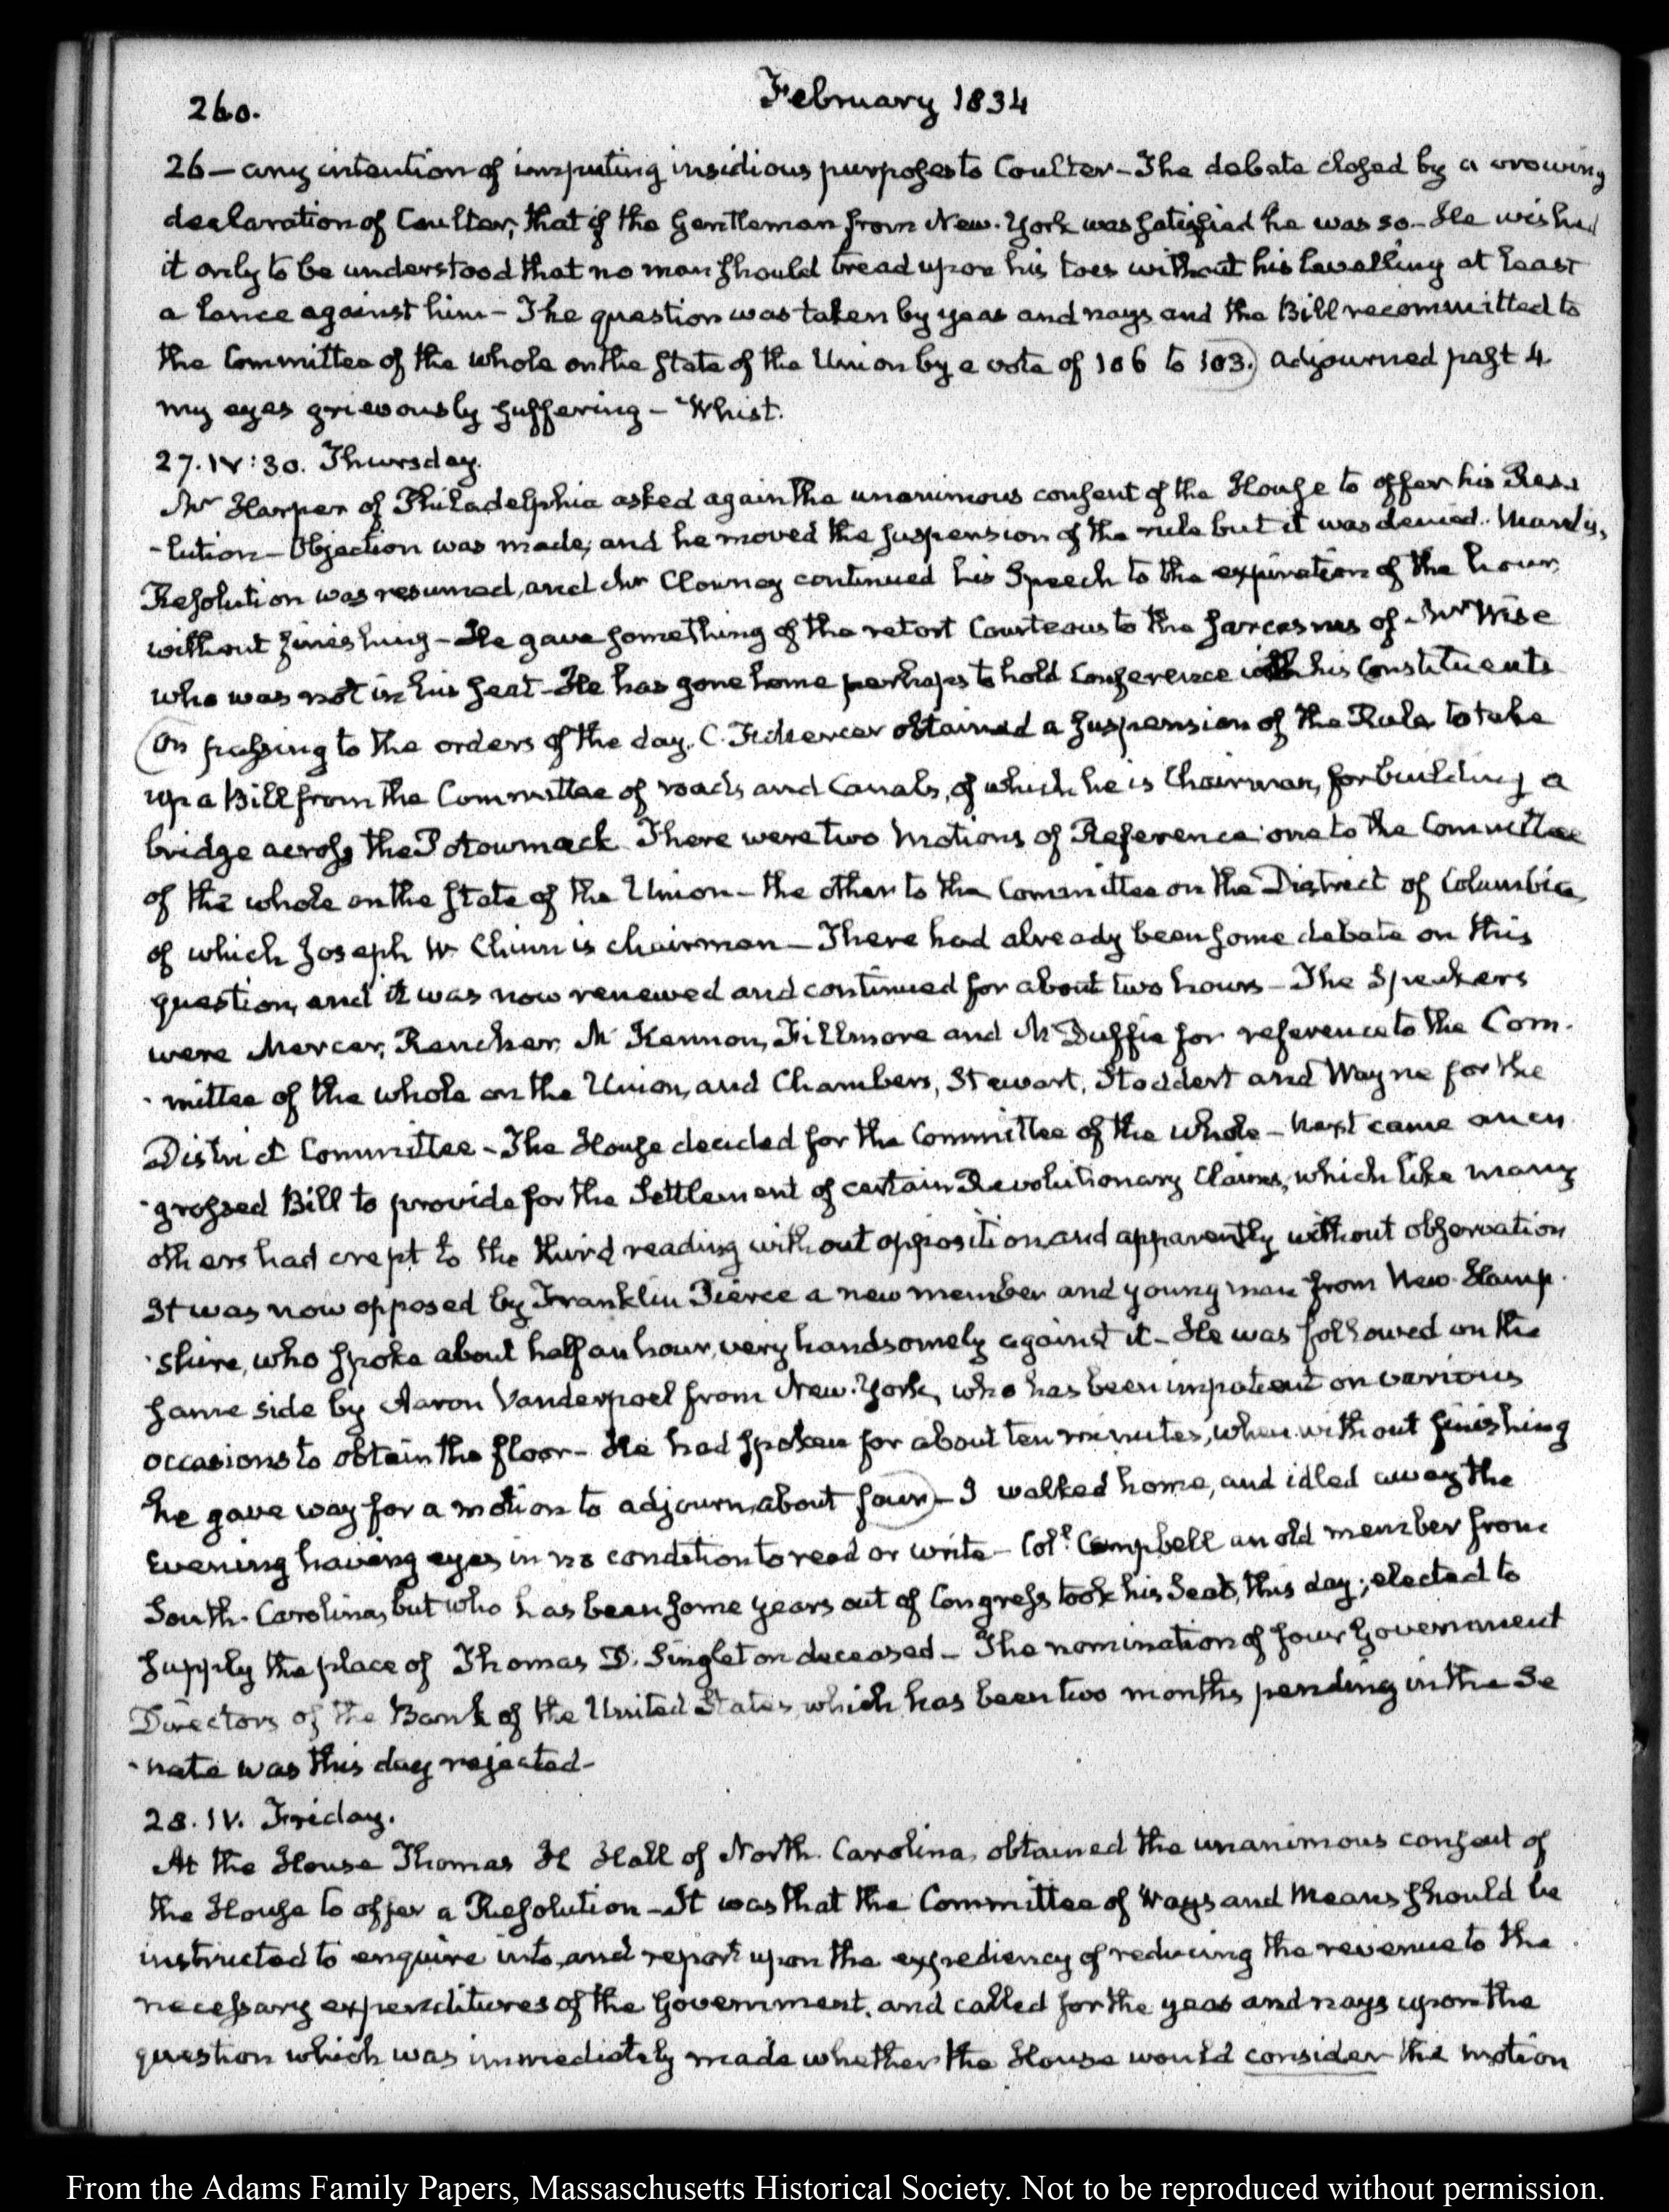 260.
February 1834
26 — any intention of imputing insidious purposes to Coulter — The debate closed by a crowing
declaration of Coulter, that if the Gentleman from New-York was satisfied he was so — He wished
it only to be understood that no man should tread upon his toes without his levelling at least
a lance against him — The question was taken by yeas and nays and the Bill recommitted to
the Committee of the whole on the state of the Union by a vote of 106 to 103. adjourned past 4
my eyes grievously suffering — Whist.
27. IV:30. Thursday.
Mr Harper of Philadelphia asked again the unanimous consent of the House to offer his Reso
-lution — Objection was made, and he moved the suspension of the rule but it was denied. Mardis's
Resolution was resumed, and Mr Clowney continued his Speech to the expiration of the hour,
without finishing — He gave something of the retort Courteous to the sarcasms of Mr Wise
who was not in his seat — He has gone home perhaps to hold Conference with his Constituents
On passing to the orders of the day, C. F. Mercer obtained a suspension of the Rule to take
up a Bill from the Committee of roads and Canals, of which he is Chairman, for building a
bridge across the Potowmack There were two Motions of Reference one to the Committee
of the whole on the state of the Union — the other to the Committee on the District of Columbia,
of which Joseph W. Chinn is chairman — There had already been some debate on this
question, and it was now renewed and continued for about two hours — The Speakers
were Mercer, Rencher, McKennon, Fillmore and McDuffie for reference to the Com-
-mittee of the whole on the Union, and Chambers, Stewart, Stoddert and Wayne for the
District Committee — The House decided for the Committee of the whole — Next came an en
-grossed Bill to provide for the Settlement of certain Revolutionary Claims, which like many
others had crept to the third reading without opposition and apparently without observation
It was now opposed by Franklin Pierce a new member and young man from New-Hamp-
-shire, who spoke about half an hour, very handsomely against it — He was followed on the
same side by Aaron Vanderpoel from New-York, who has been impatient on various
occasions to obtain the floor — He had spoken for about ten minutes, when without finishing
he gave way for a motion to adjourn, about four — I walked home, and idled away the
Evening having eyes in no condition to read or write — Coll. Campbell an old member from
South-Carolina, but who has been some years out of Congress took his Seat, this day; elected to
supply the place of Thomas D. Singleton deceased — The nomination of four Government
Directors of the Bank of the United States, which has been two months pending in the Se
-nate was this day rejected —
28. IV. Friday.
At the House Thomas H Hall of North-Carolina, obtained the unanimous consent of
the House to offer a Resolution — It was that the Committee of Ways and Means should be
instructed to enquire into, and report upon the expediency of reducing the revenue to the
necessary expenditures of the Government, and called for the yeas and nays upon the
question which was immediately made whether the House would consider the motion
From the Adams Family Papers, Massachusetts Historical Society. Not to be reproduced without permission.